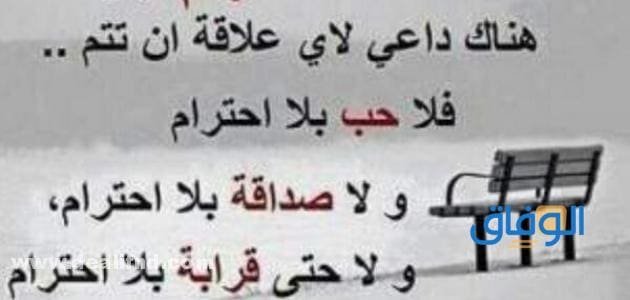 هناك داعي لاي علاقة ان تتم ..
فلا حب بلا احترام
و لا صداقة بلا احترام،
الوفاق
و لا حتى قرابة بلا احترام